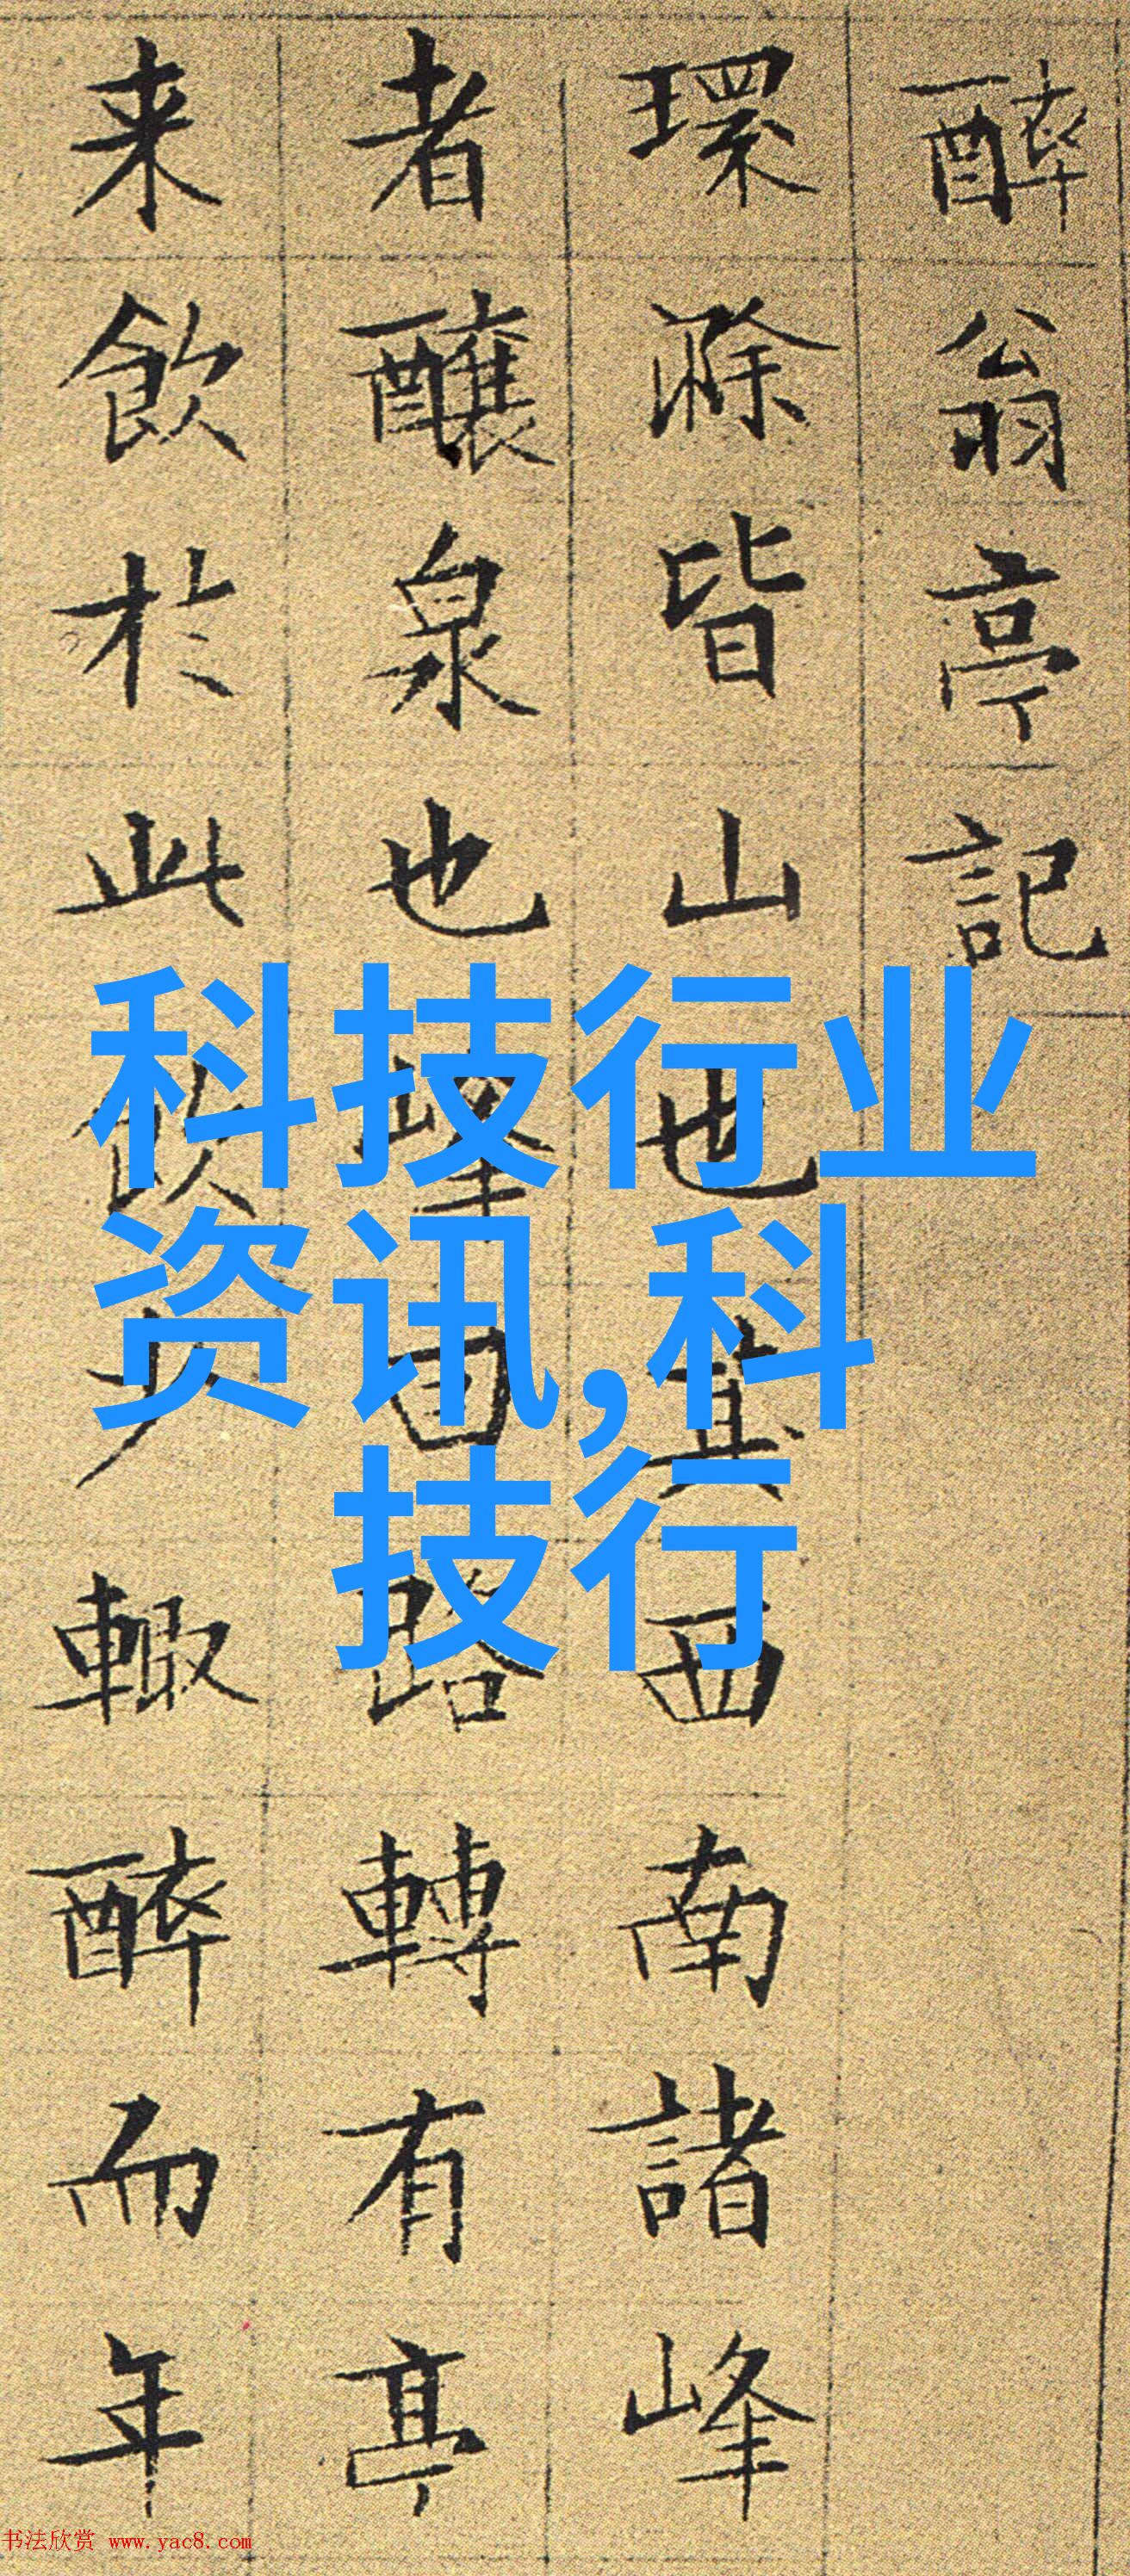 醉翁亭記
環滁皆山也其西南諸峰
者釀泉也峰回路轉有亭
来飲於此飲少輒醉而年
科技行业
资讯,科
技行
书法欣赏 www.yac8.com